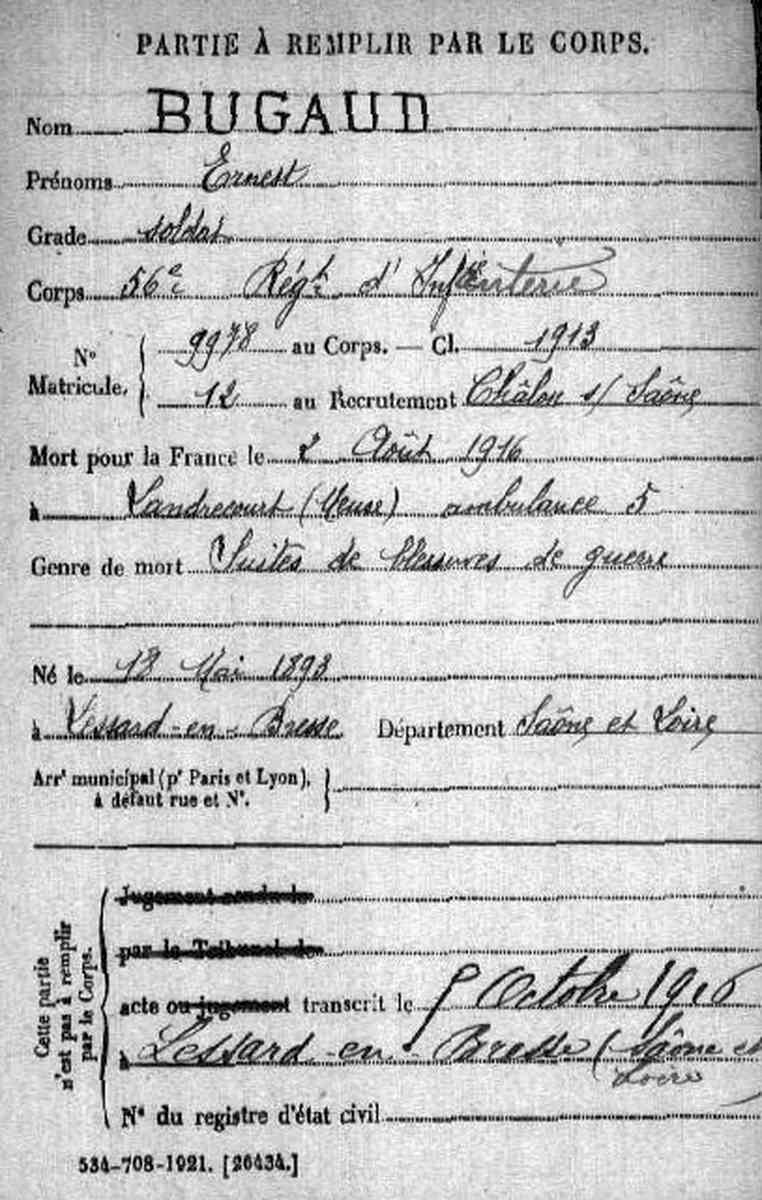 PARTIE À REMPLIR PAR LE CORPS.
Nom BUGAUD
Prénoms Ernest
Grade soldat
Corps 56e Régt d'Infanterie
No Matricule. 9978 au Corps. — Cl. 1913
12 au Recrutement Châlon s/ Saône
Mort pour la France le 2 Août 1916
à Landrecourt (Meuse) ambulance 5
Genre de mort Suites de blessures de guerre
Né le 18 Mai 1893
à Lessard-en-Bresse Département Saône et Loire
Arrt municipal (pr Paris et Lyon),
à défaut rue et No.
Cette partie
n'est pas à remplir
par le Corps.
Jugement rendu le
par le Tribunal de
acte ou jugement transcrit le Octobre 1916
à Lessard-en-Bresse (Saône et
Loire
No du registre d'état civil
534-708-1921. [26434.]